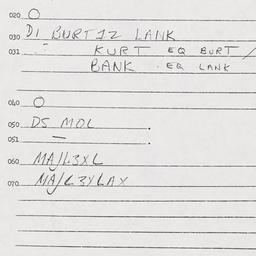 020 O
030 DI BURT12 LANK
031 KURT EQ BURT /
BANK . EQ LANK
040 O
050 DS MOL .
051 — .
060 MA/L3XL
070 MA/L3YLAX